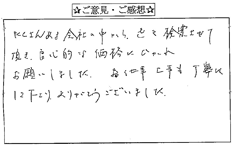 ☆ご意見・ご感想☆
たくさんある会社の中から、色々検索させて
頂き、良心的な価格にひかれ
お願いしました。お仕事も丁寧に
して下さりありがとうございました。